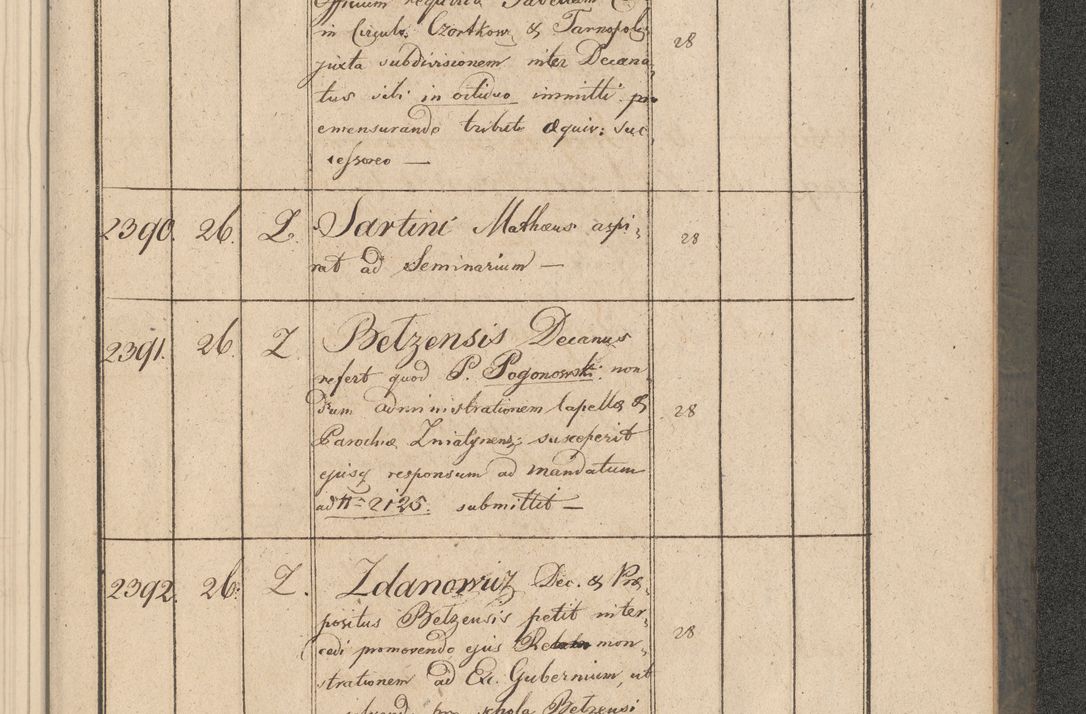 Officium requirit Tabellam
in Circulo Czortkow. & Tarnopol. 28
juxta subdivisionem inter Decana
tus sibi in octiduo immitti pro
emensurando tributo æquiv: suc
cessoreo —
2390. 26. L. Sartini Mathæus aspi: 28
rat ad Seminarium —
2391. 26. Z Betzensis Decanus
refert quod P. Pogonowski non
dum administrationem Capellæ & 28
Parochiæ susceperit
ejusq responsum ad mandatum
ad N= 2125. submittit —
2392. 26: Z. Zdanowicz Dec. & Præ
positus Betzensis petit inter 28
cedi promovendo ejus mon
strationem ad Exc. Gubernium, ut
schola Betzensi